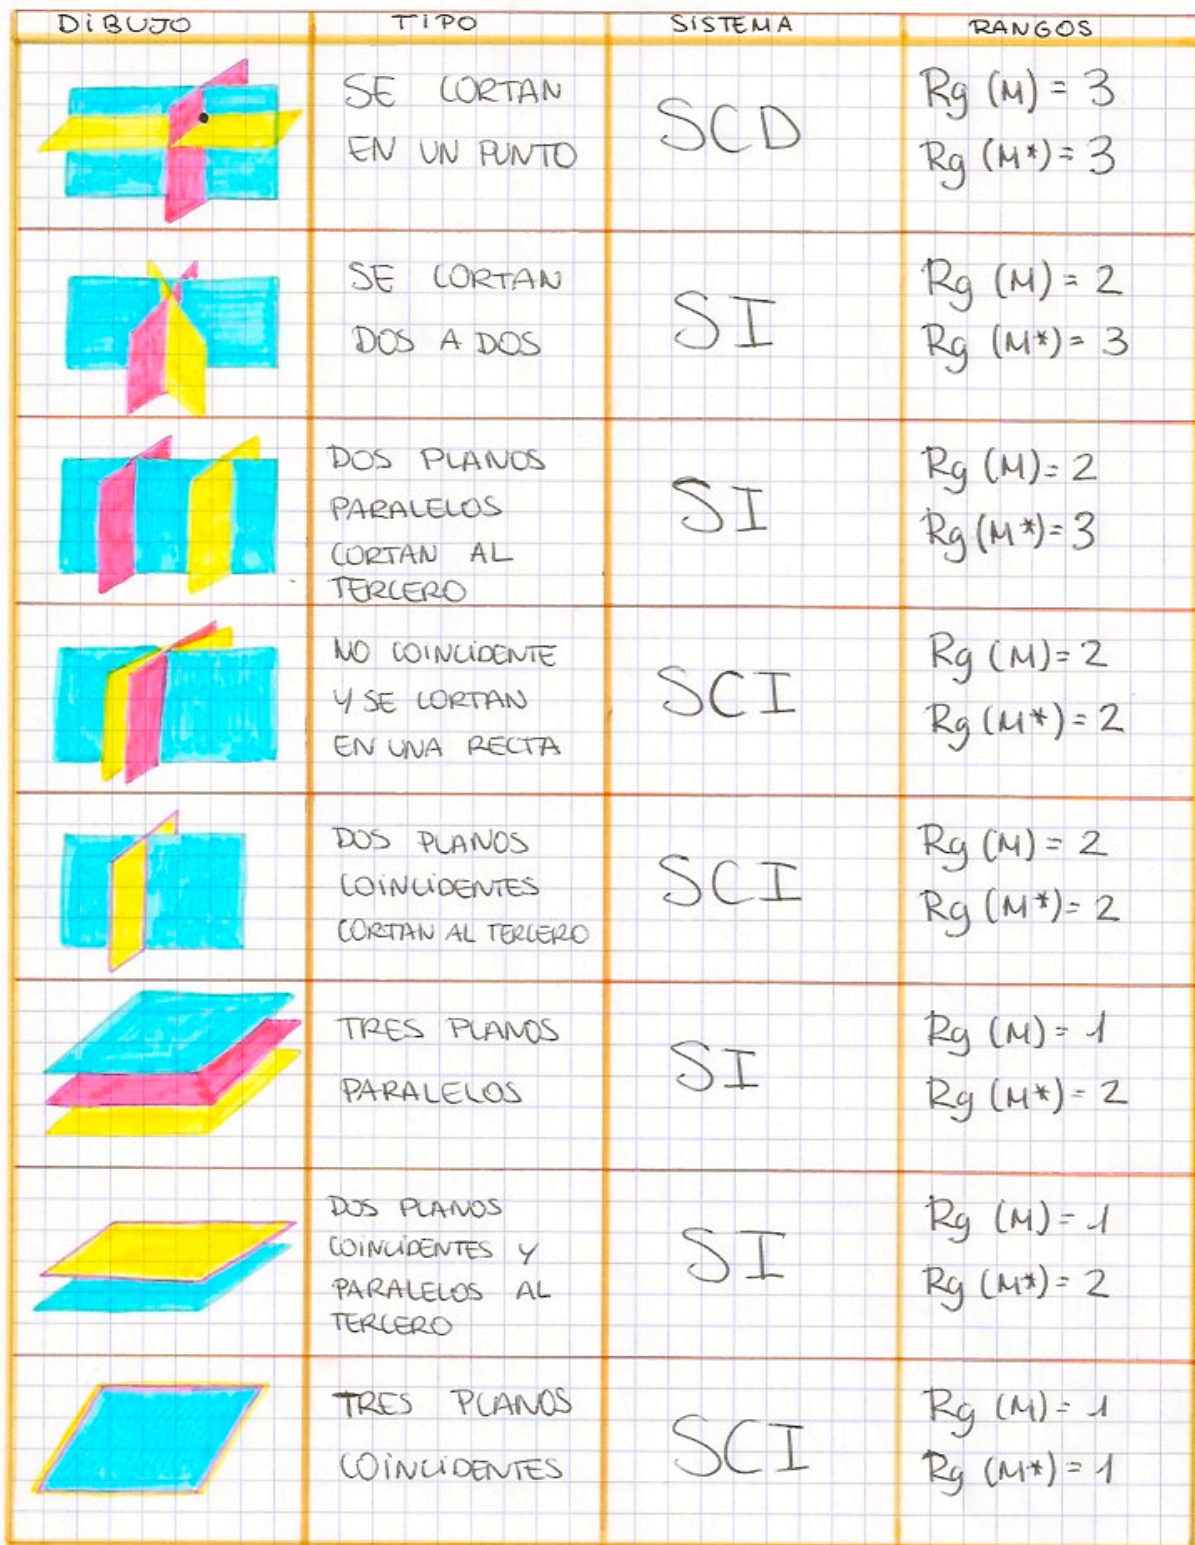 DIBUJO TIPO SISTEMA RANGOS
SE CORTAN
EN UN PUNTO
SCD
Rg (M) = 3
Rg (M*) = 3
SE CORTAN
DOS A DOS
SI
Rg (M) = 2
Rg (M*) = 3
DOS PLANOS
PARALELOS
CORTAN AL
TERCERO
SI
Rg (M) = 2
Rg (M*) = 3
NO COINCIDENTE
Y SE CORTAN
EN UNA RECTA
SCI
Rg (M) = 2
Rg (M*) = 2
DOS PLANOS
COINCIDENTES
CORTAN AL TERCERO
SCI
Rg (M) = 2
Rg (M*) = 2
TRES PLANOS
PARALELOS
SI
Rg (M) = 1
Rg (M*) = 2
DOS PLANOS
COINCIDENTES Y
PARALELOS AL
TERCERO
SI
Rg (M) = 1
Rg (M*) = 2
TRES PLANOS
COINCIDENTES
SCI
Rg (M) = 1
Rg (M*) = 1